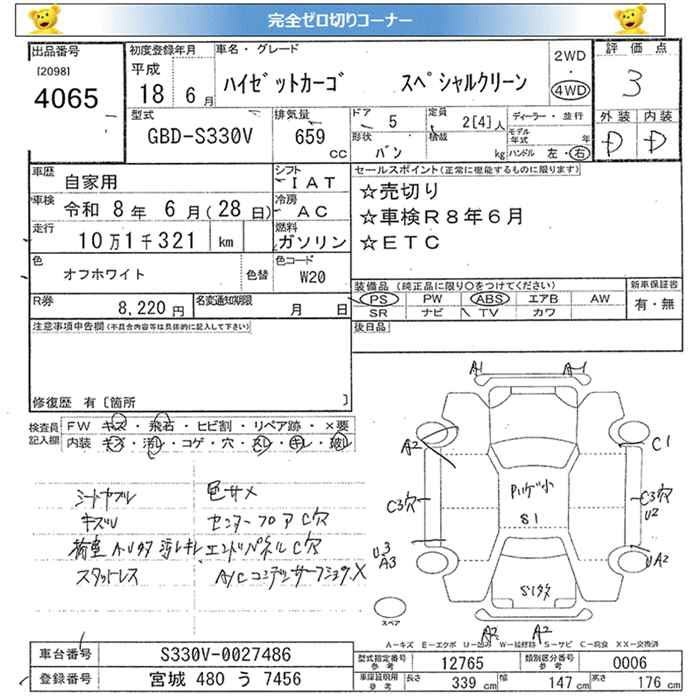 完全ゼロ切りコーナー
出品番号 初度登録年月 車名・グレード 2WD 評価点
[2098] 平成 ・
4065 18 年 6 月 ハイゼットカーゴ スペシャルクリーン 4WD 3
型式 排気量 ドア 5 定員 2[4]人 ディーラー・並行 外装 内装
GBD-S330V 659 cc 形状 バン 積載 kg モデル年式 年 D D
ハンドル 左・右
車歴 自家用 シフト IAT セールスポイント(正常に機能するものに限ります)
車検 令和 8年 6月(28日) 冷房 AC ☆売切り
走行 10万1千321 km 燃料 ガソリン ☆車検R8年6月
色 オフホワイト 色替 色コード W20 ☆ETC
装備品(純正品に限り○をつけてください) 新車保証書
R券 8,220円 名変通知期限 月 日 PS PW ABS エアB AW 有・無
SR ナビ TV カワ
注意事項申告欄(不具合内容等は具体的に記入して下さい) 後日品
修復歴 有[箇所 ]
検査員 FW キズ・飛石・ヒビ割・リペア跡・×要
記入欄 内装 キズ・汚レ・コゲ・穴・スレ・キレ・破レ
A1 A1
A2 C1
シートヤブレ 色サメ
キズU センターフロア C穴
C3穴 S1 C3穴 U2
荷室 汚レキレ エンドパネル C穴
U3 A3 UA2
スタットレス A/Cコンデンサー X
スペア
A2 A2
A=キズ E=エクボ U=凹み W=補修跡 S=サビ C=腐食 XX=交換済
車台番号 S330V-0027486 型式指定番号 参考 12765 類別区分番号 参考 0006
登録番号 宮城 480 う 7456 車庫証明用 参考 長さ 339 cm 幅 147 cm 高さ 176 cm